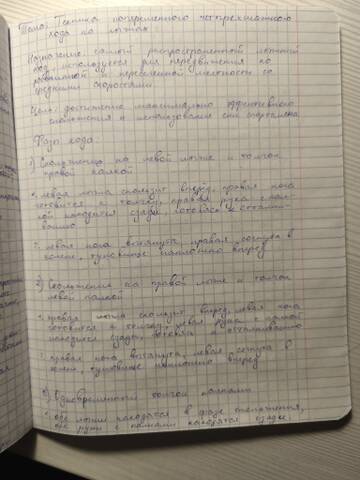 Тема: Техника попеременного четырехшажного
хода на лыжах
Назначение: самый распространенный лыжный
ход используется для передвижения по
равнинной и пересеченной местности со
средними скоростями
Цель: достижение максимально эффективного
скольжения и использования сил спортсмена
Фазы хода:
1) Скольжение на левой лыже и толчок
правой палкой
• левая лыжа скользит вперёд, правая нога
готовится к толчку, правая рука с пал-
кой находится сзади, готовясь к отталки-
ванию
• левая нога выгнута, правая согнута в
колене, туловище наклонено вперед
2) Скольжение на правой лыже и толчок
левой палкой
• правая лыжа скользит вперед, левая нога
готовится к толчку, левая рука с палкой
находится сзади, готовясь к отталкиванию
• правая нога выгнута, левая согнута в
колене, туловище наклонено вперед
3) Одновременный толчок палками
• обе лыжи находятся в фазе скольжения,
обе руки с палками находятся сзади,